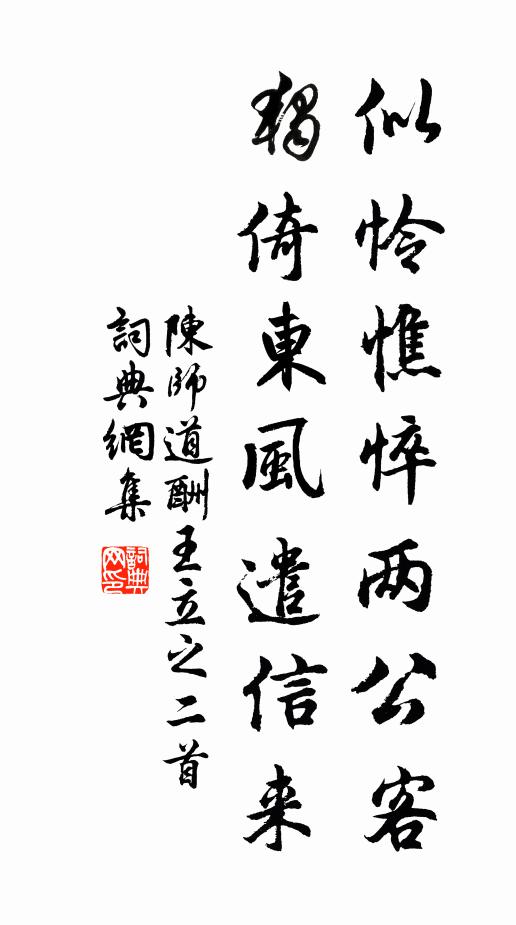 似怜憔悴两公客
獨倚東風遣信来
陳師道酬王立之二首
詞典網集
詞典
网印